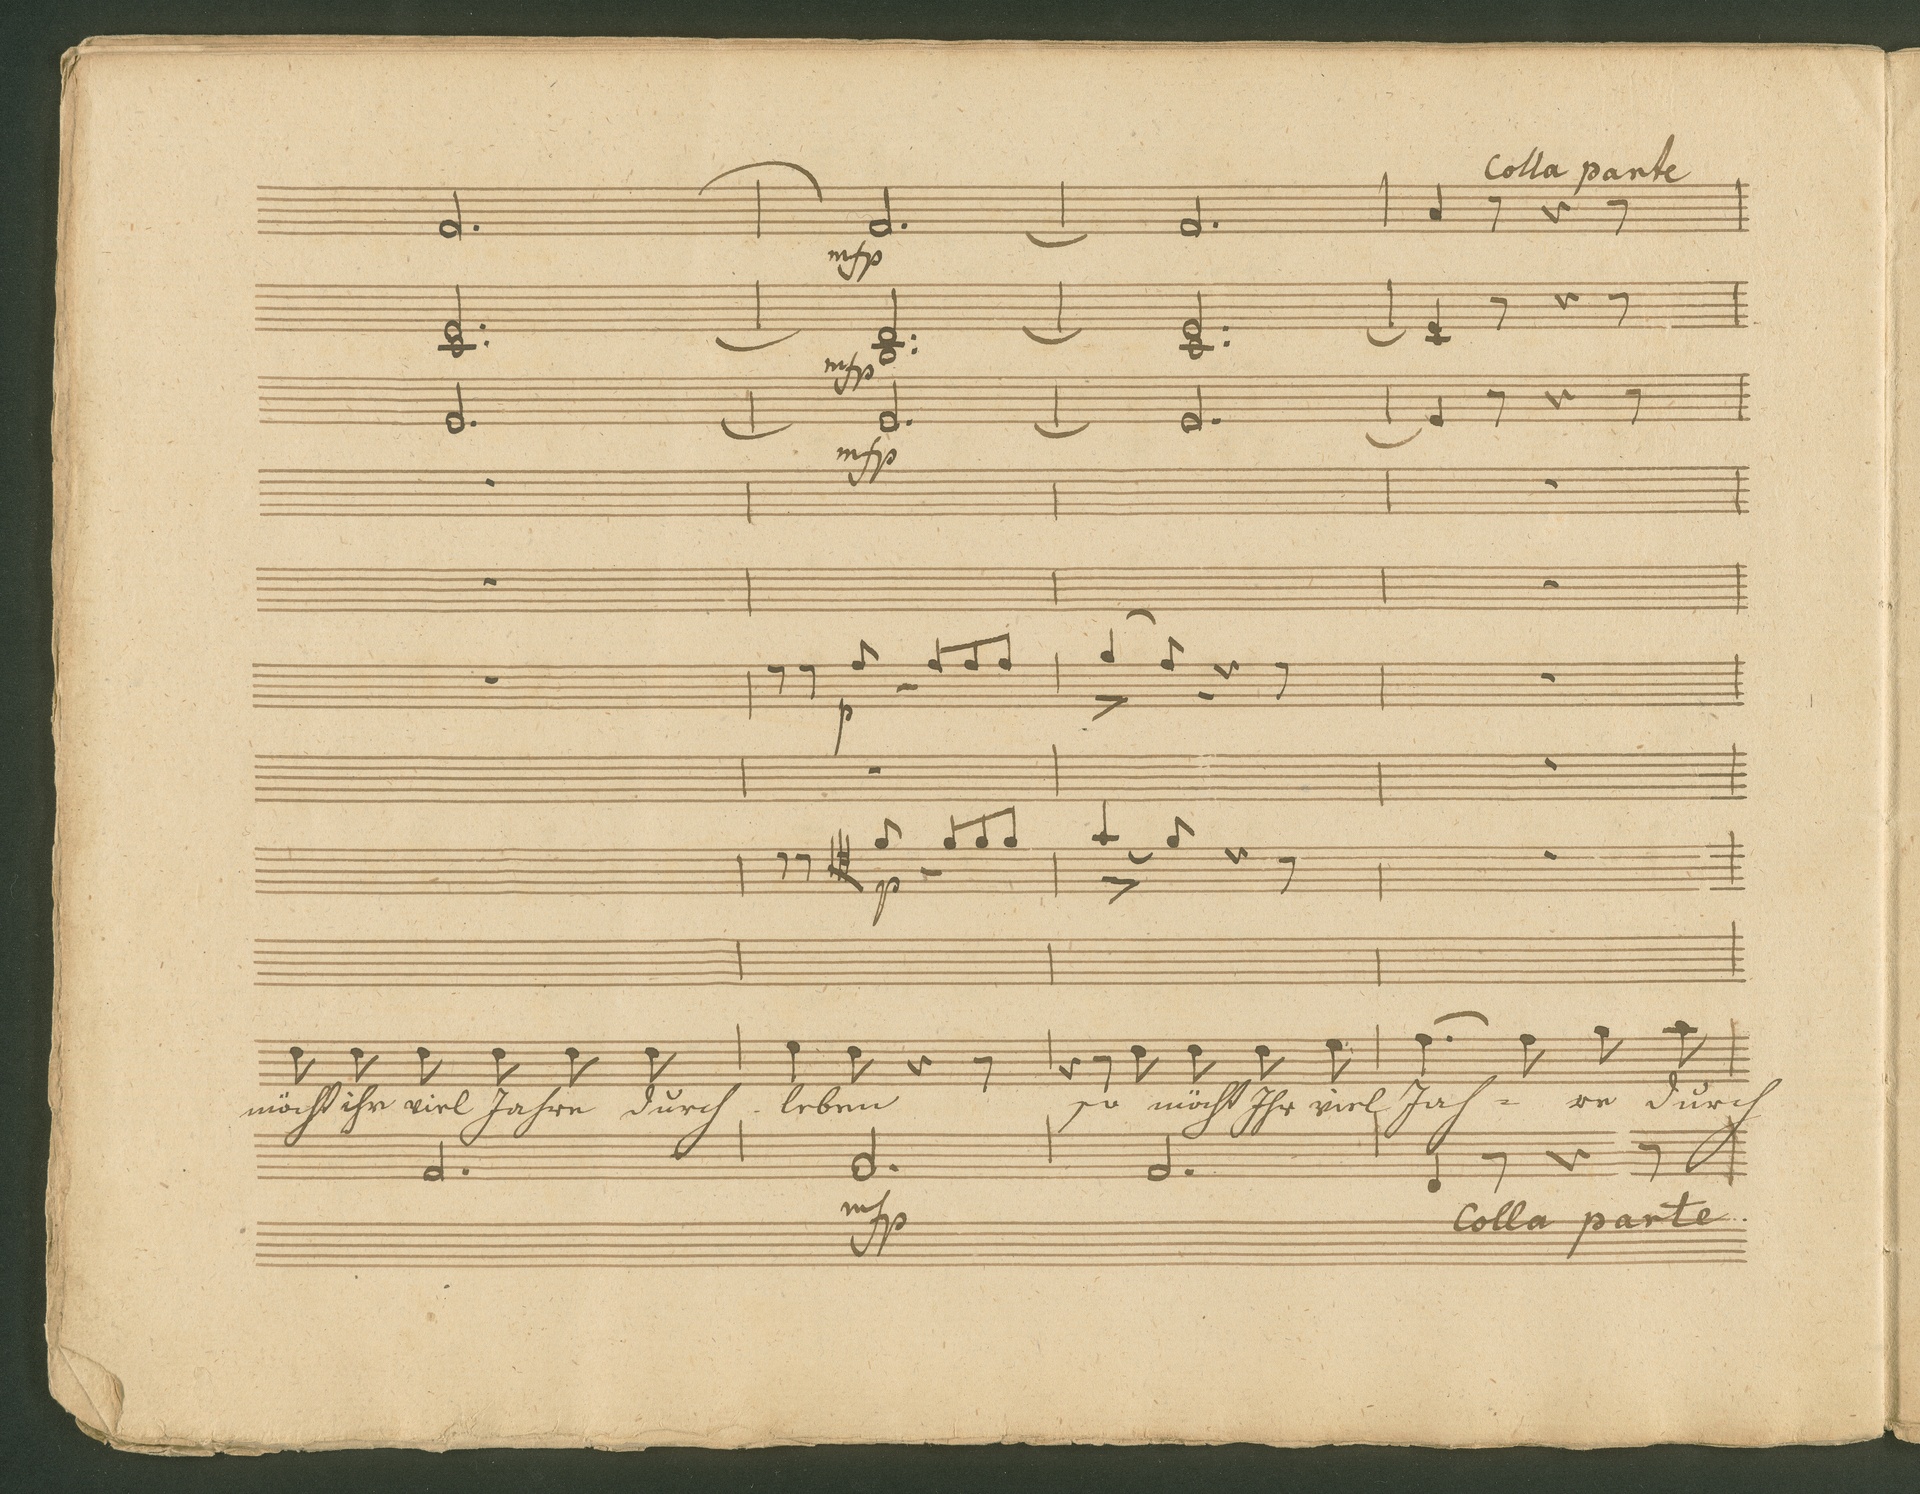 Colla parte
mfp
mfp
mfp
p
p
möcht ihr viel Jahre durch - leben so möcht Ihr viel Jah = re durch
mfp
Colla parte